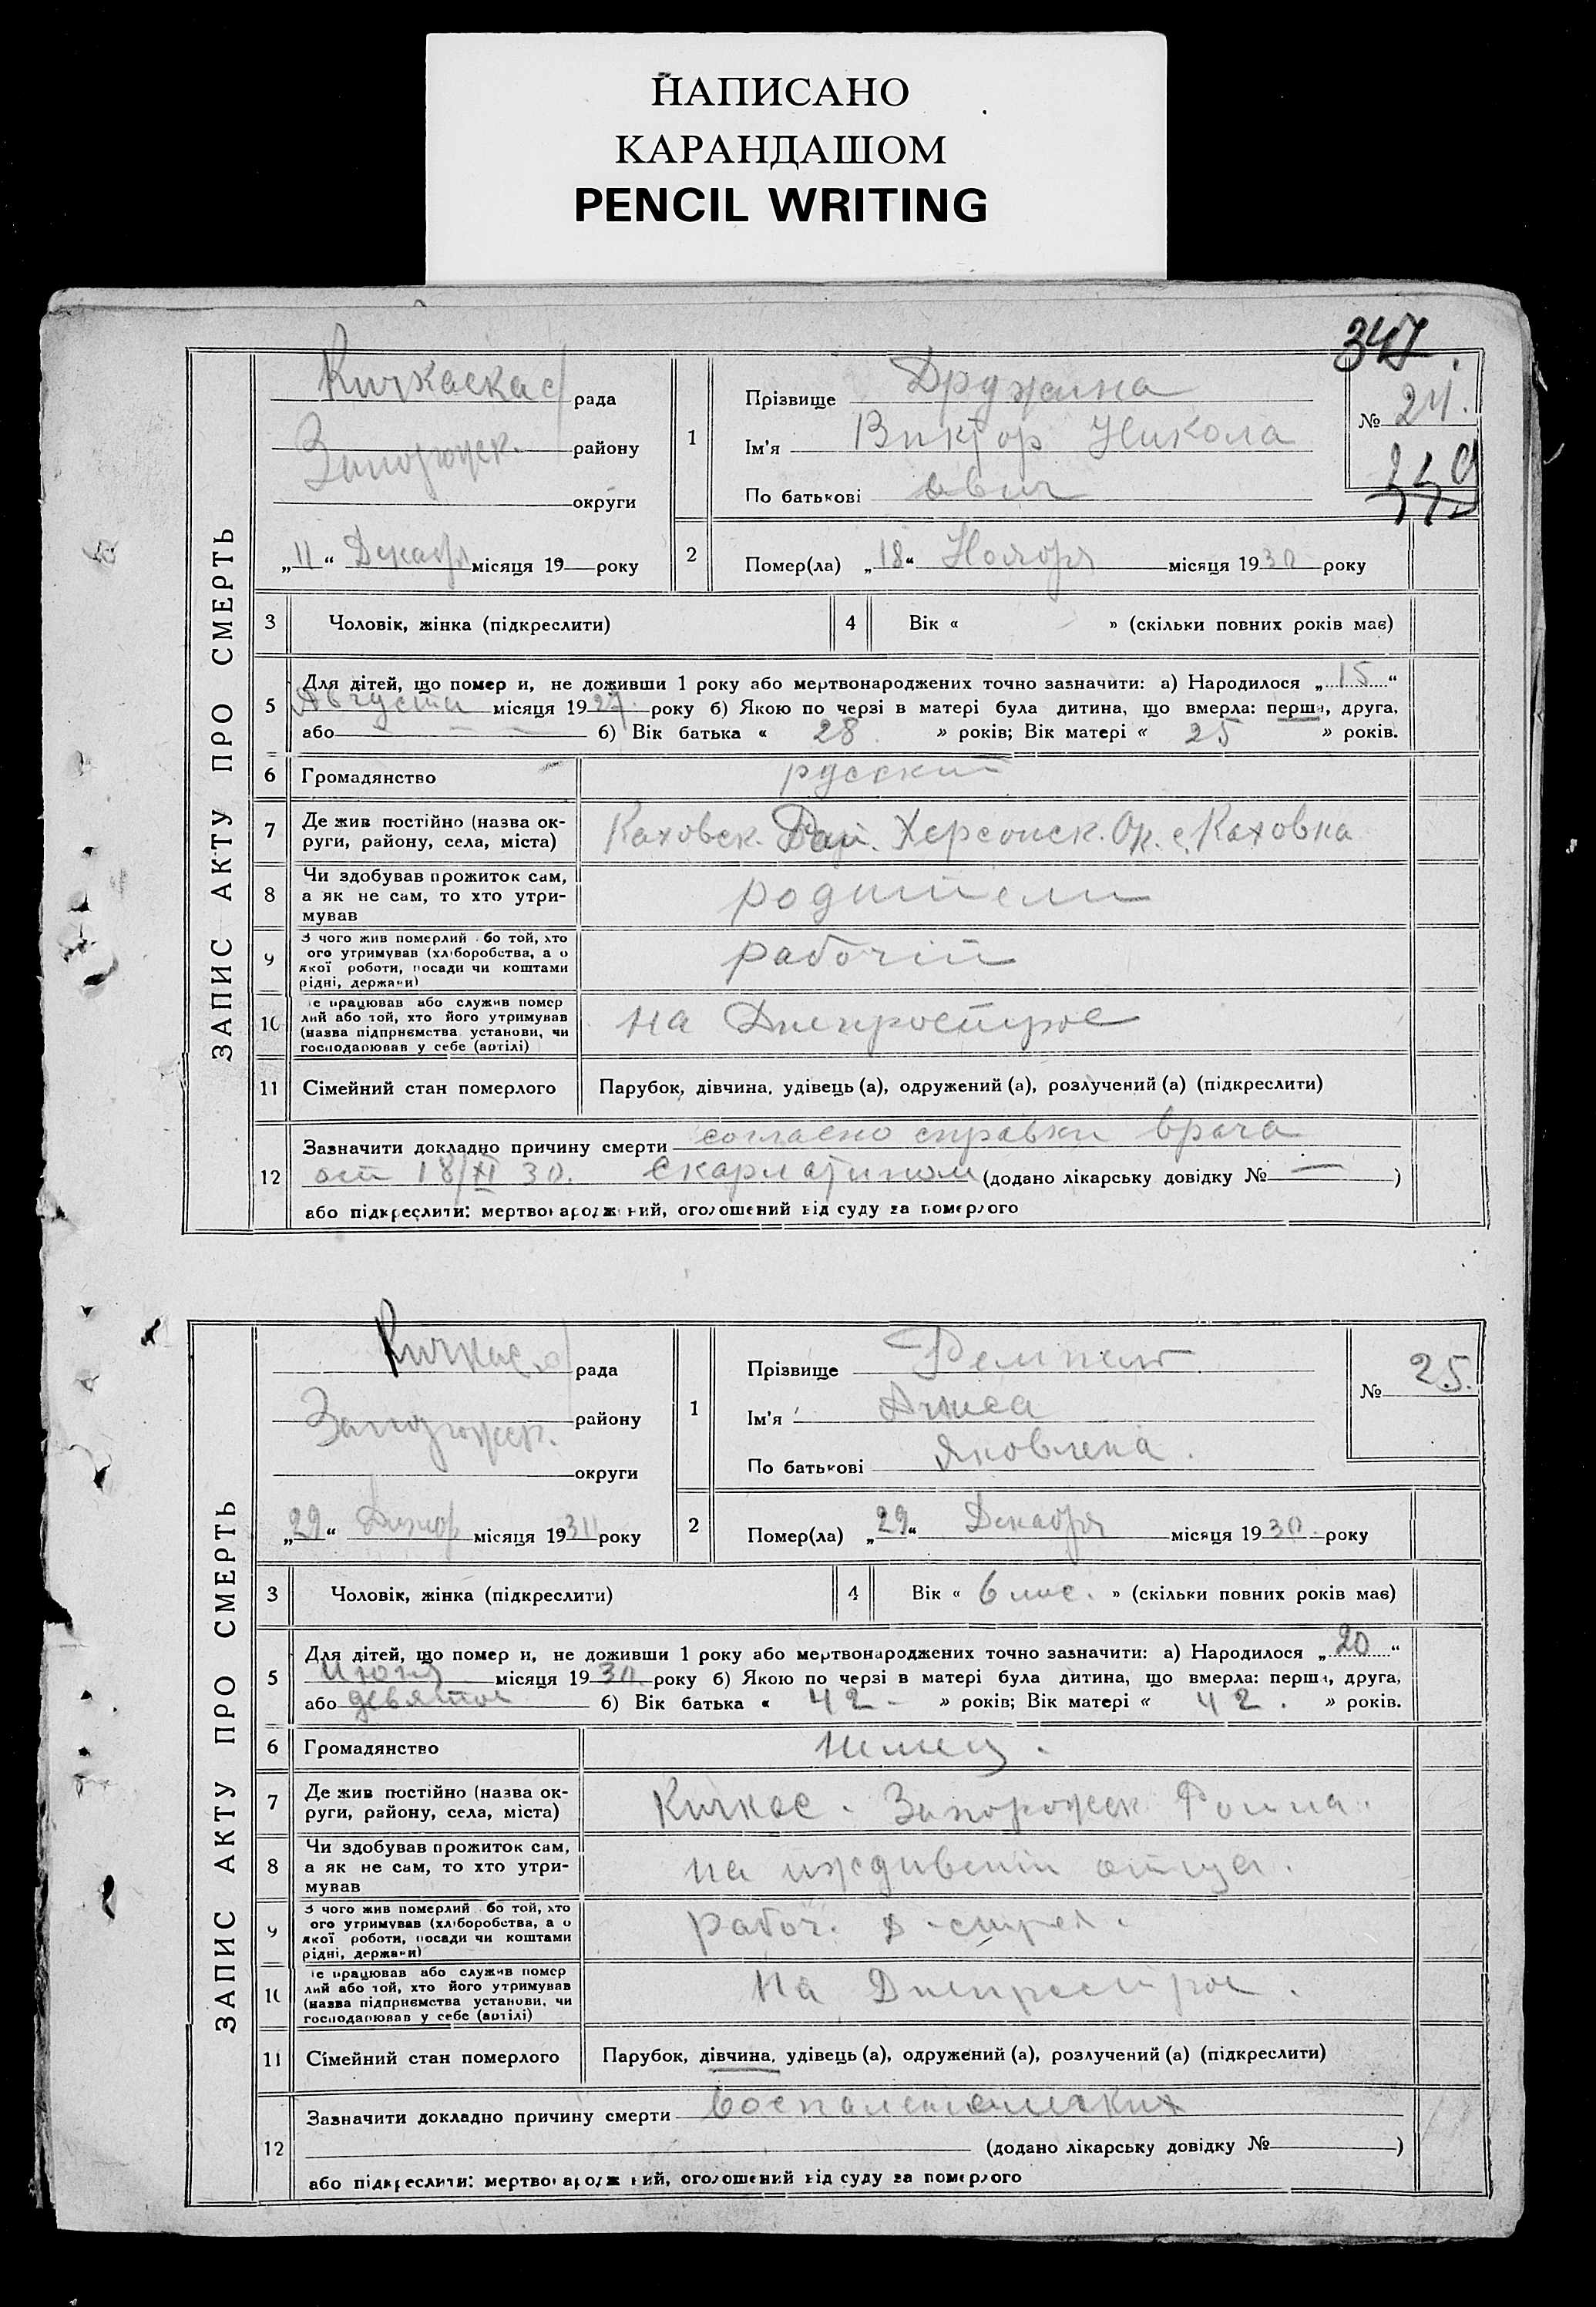 НАПИСАНО
КАРАНДАШОМ
PENCIL WRITING
347
ЗАПИС АКТУ ПРО СМЕРТЬ
Кичкаская с/ рада
Запорожск. району
округи
„11“ Декабря місяця 19 року
1 Прізвище Дружина
Ім'я Виктор Никола
По батькові евич
№ 24.
2 Помер(ла) „18“ Ноября місяця 1930 року
3 Чоловік, жінка (підкреслити)
4 Вік « » (скільки повних років має)
5 Для дітей, що помер и, не доживши 1 року або мертвонароджених точно зазначити: а) Народилося „15“
Августа місяця 1927 року б) Якою по черзі в матері була дитина, що вмерла: перша, друга,
або б) Вік батька « 28 » років; Вік матері « 25 » років.
6 Громадянство русский
7 Де жив постійно (назва ок-
руги, району, села, міста) Каховск. Рай. Херсонск. Ок. с. Каховка
8 Чи здобував прожиток сам,
а як не сам, то хто утри-
мував родители
9 З чого жив померлий бо той, хто
ого утримував (хліборобства, а о
якої роботи, посади чи коштами
рідні, держави) рабочий
10 е працював або служив помер
лий або той, хто його утримував
(назва підприємства установи, чи
господарював у себе (артілі) на Днепрострое
11 Сімейний стан померлого Парубок, дівчина, удівець (а), одружений (а), розлучений (а) (підкреслити)
12 Зазначити докладно причину смерти согласно справки врача
от 18/XI 30. Скарлатином (додано лікарську довідку № — )
або підкреслити: мертвонароджений, оголошений від суду за померлого
ЗАПИС АКТУ ПРО СМЕРТЬ
Кичкас. с/ рада
Запорожск. району
округи
„29“ Декабр місяця 19 року
1 Прізвище Ремпель
Ім'я
По батькові Яковлена.
№ 25.
2 Помер(ла) „29“ Декабря місяця 1930 року
3 Чоловік, жінка (підкреслити)
4 Вік « 6 мис. » (скільки повних років має)
5 Для дітей, що помер и, не доживши 1 року або мертвонароджених точно зазначити: а) Народилося „20“
Июня місяця 1930 року б) Якою по черзі в матері була дитина, що вмерла: перша, друга,
або девятой б) Вік батька « 42 - » років; Вік матері « 42. » років.
6 Громадянство немец.
7 Де жив постійно (назва ок-
руги, району, села, міста) Кичкас. Запорожск
8 Чи здобував прожиток сам,
а як не сам, то хто утри-
мував на иждивении отца.
9 З чого жив померлий бо той, хто
ого утримував (хліборобства, а о
якої роботи, посади чи коштами
рідні, держави) рабоч. Д-строя.
10 е працював або служив помер
лий або той, хто його утримував
(назва підприємства установи, чи
господарював у себе (артілі) На Днепрострое.
11 Сімейний стан померлого Парубок, дівчина, удівець (а), одружений (а), розлучений (а) (підкреслити)
12 Зазначити докладно причину смерти воспаление легких
(додано лікарську довідку № )
або підкреслити: мертвонароджений, оголошений від суду за померлого